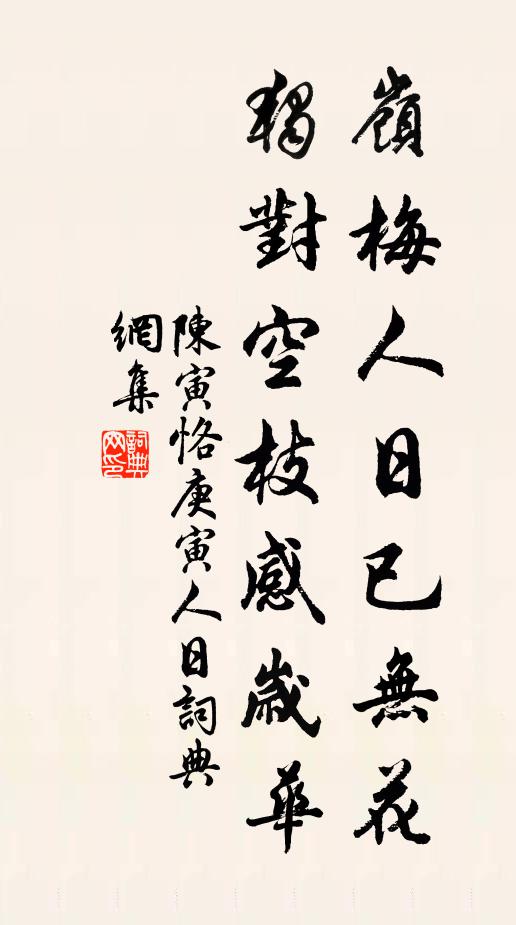 嶺梅人日已無花
獨對空枝感歲華
陳寅恪庚寅人日詞典
網集
詞典網印